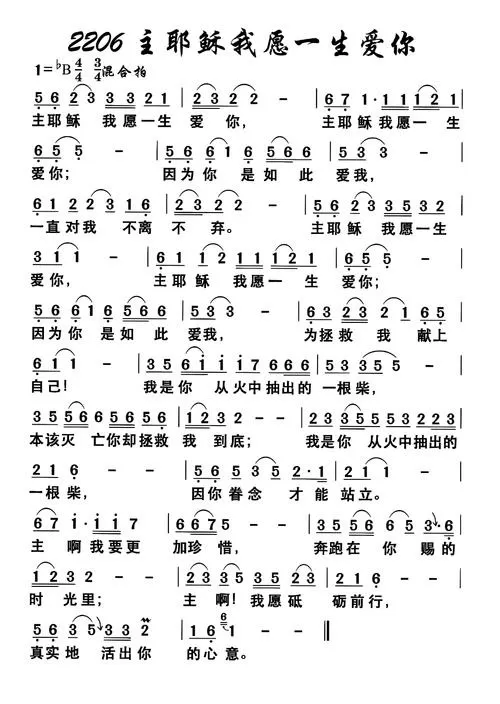 2206 主耶稣我愿一生爱你
1=♭B 4/4 3/4 混合拍
5 6 2 3 3 3 2 1 | 2 3 2 2 - | 6 7 1· 1 1 1 2 1 |
主耶稣 我愿一生 爱 你, 主耶稣我愿一 生
6 5 5 - | 5 6 6 1 6 5 6 6 | 5 3 3 - |
爱你; 因为你 是如 此 爱我,
6 1 2 2 3 1 6 | 2 3 2 2 - | 5 6 2 3 3 5 3 2 |
一直对我 不离 不 弃。 主耶稣 我愿一生
3 1 1 - | 6 1 1 2 1 1 1 2 1 | 6 5 5 - |
爱你, 主耶稣 我愿一 生 爱你;
5 6 6 1 6 5 6 6 | 5 3 3 - | 6 3 2 3 2 1 6 5 |
因为你 是如 此 爱我, 为拯救 我 献上
6 1 1 - | 3 5 6 1 1 1 7 6 6 6 | 5 3 3 5 5 - |
自己! 我是你 从火中抽出的 一根柴,
3 5 5 6 6 5 6 5 6 | 1 2 3 2 - - | 2 3 3 5 5 5 3 2 2 3 |
本该灭 亡你却拯救 我 到底; 我是你 从火中抽出的
2 1 6 - | 5 6 5 3 5 2·1 | 2 1 1 - |
一根柴, 因你眷念 才能 站立。
6 7 1·1 1 7 | 6 6 7 5 - | 3 5 5 6 6 5 3·6 |
主 啊我要更 加珍 惜, 奔跑在 你 赐的
1 2 3 2 - | 2 3 3 5 5 3 5 | 2 1 6 - |
时 光里; 主 啊!我愿砥 砺前行,
5 6 3 5 3 3 2 | 1 6 6 1 - - ‖
真实地 活出你 的心意。